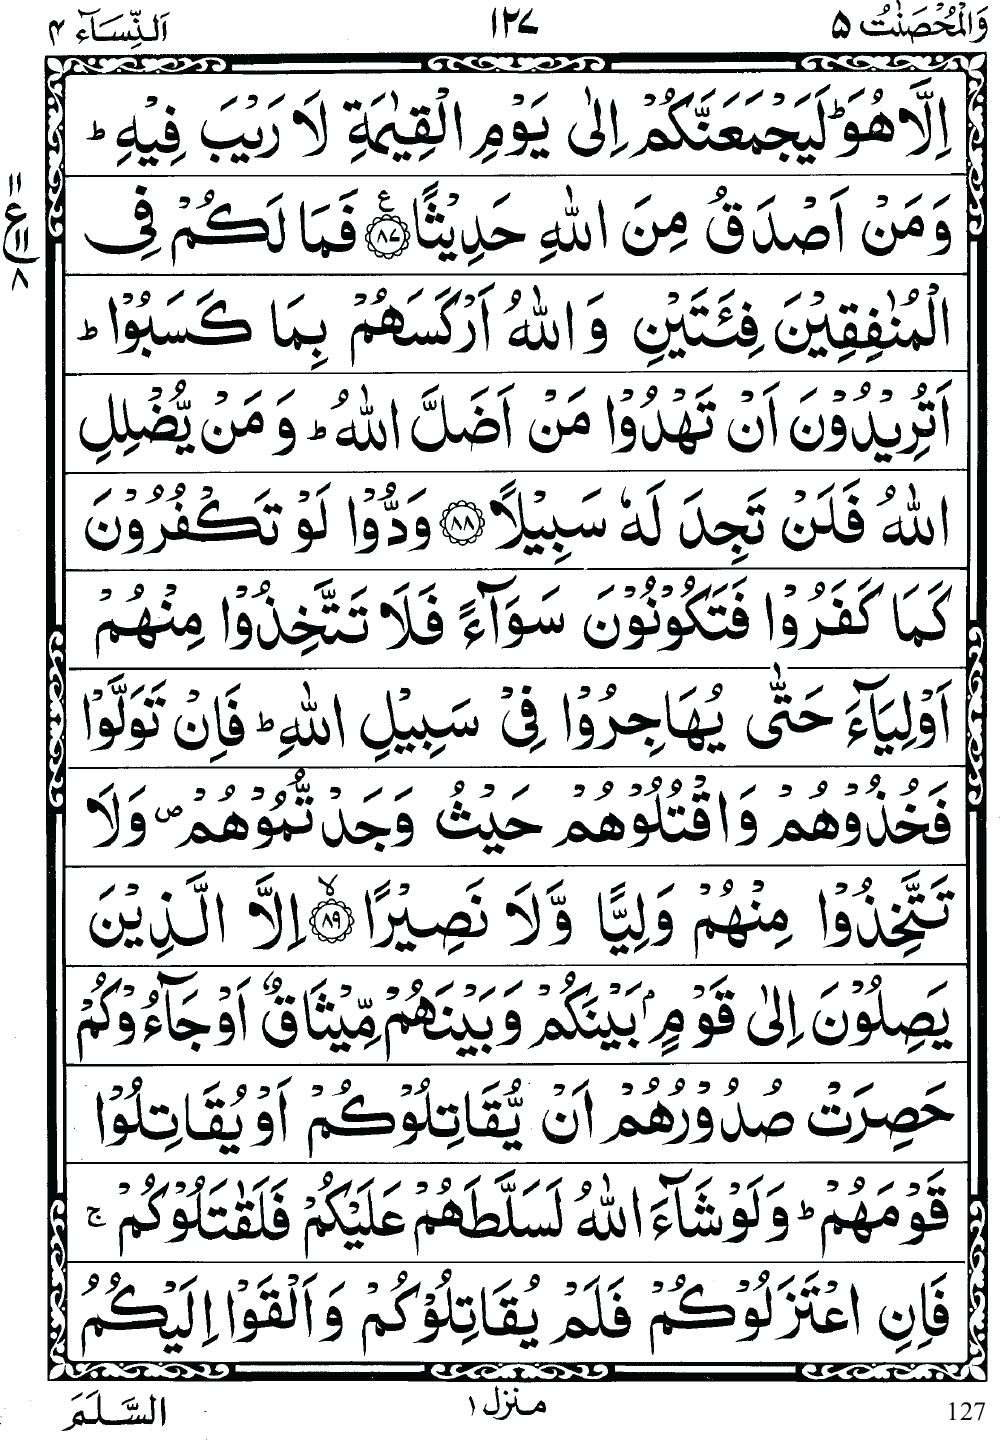 وَالْمُحْصَنٰتُ ۵ ۱۲۷ اَلنِّسَآء ۴
اِلَّا هُوَ ؕ لَيَجْمَعَنَّكُمْ اِلٰى يَوْمِ الْقِيٰمَةِ لَا رَيْبَ فِيْهِ ؕ
وَمَنْ اَصْدَقُ مِنَ اللّٰهِ حَدِيْثًا ۧ ﴿۸۷﴾ فَمَا لَكُمْ فِى
الْمُنٰفِقِيْنَ فِئَتَيْنِ وَاللّٰهُ اَرْكَسَهُمْ بِمَا كَسَبُوْا ؕ
اَتُرِيْدُوْنَ اَنْ تَهْدُوْا مَنْ اَضَلَّ اللّٰهُ ؕ وَمَنْ يُّضْلِلِ
اللّٰهُ فَلَنْ تَجِدَ لَهٗ سَبِيْلًا ﴿۸۸﴾ وَدُّوْا لَوْ تَكْفُرُوْنَ
كَمَا كَفَرُوْا فَتَكُوْنُوْنَ سَوَآءً فَلَا تَتَّخِذُوْا مِنْهُمْ
اَوْلِيَآءَ حَتّٰى يُهَاجِرُوْا فِىْ سَبِيْلِ اللّٰهِ ؕ فَاِنْ تَوَلَّوْا
فَخُذُوْهُمْ وَاقْتُلُوْهُمْ حَيْثُ وَجَدْتُّمُوْهُمْ ۪ وَلَا
تَتَّخِذُوْا مِنْهُمْ وَلِيًّا وَّلَا نَصِيْرًا ۙ ﴿۸۹﴾ اِلَّا الَّذِيْنَ
يَصِلُوْنَ اِلٰى قَوْمٍۭ بَيْنَكُمْ وَبَيْنَهُمْ مِّيْثَاقٌ اَوْ جَآءُوْكُمْ
حَصِرَتْ صُدُوْرُهُمْ اَنْ يُّقَاتِلُوْكُمْ اَوْ يُقَاتِلُوْا
قَوْمَهُمْ ؕ وَلَوْ شَآءَ اللّٰهُ لَسَلَّطَهُمْ عَلَيْكُمْ فَلَقٰتَلُوْكُمْ ۚ
فَاِنِ اعْتَزَلُوْكُمْ فَلَمْ يُقَاتِلُوْكُمْ وَاَلْقَوْا اِلَيْكُمُ
۱۱
ع
۱۱
۸
127 منزل ۱ السَّلَمَ